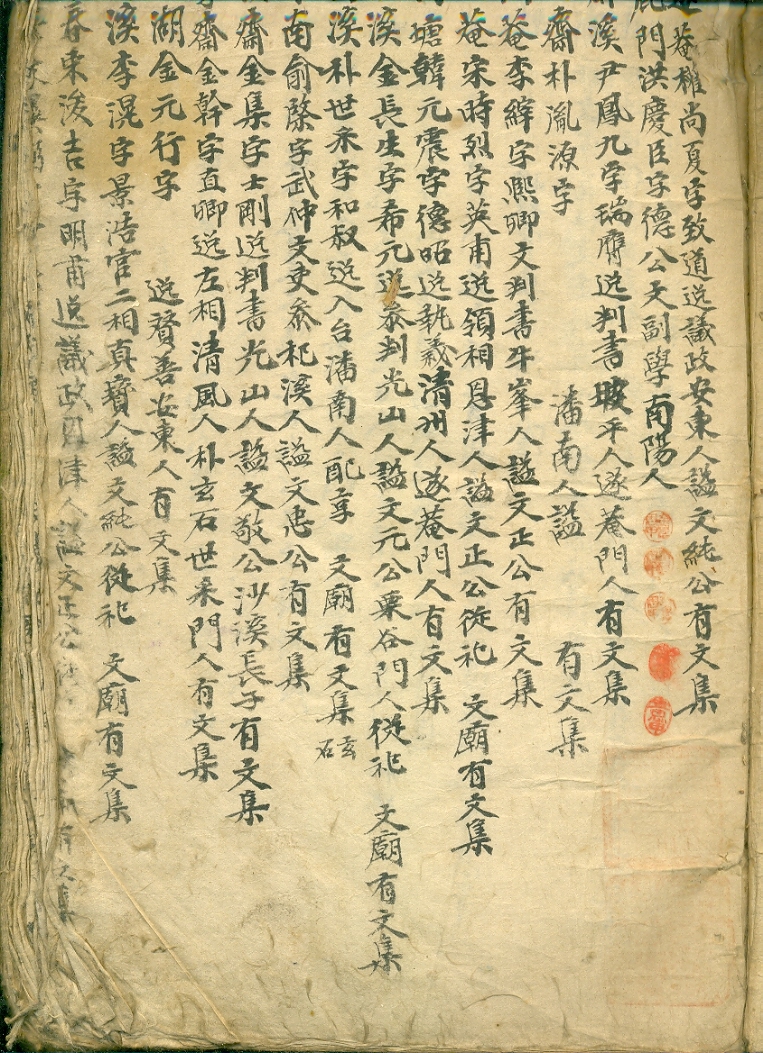 遂菴權尚夏字致道逸議政安東人謚文純公有文集
鹿門洪慶臣字德公文副學南陽人
溪尹鳳九字瑞膺逸判書坡平人遂菴門人有文集
齋朴胤源字 潘南人謚 有文集
菴李縡字熙卿文判書牛峯人謚文正公有文集
菴宋時烈字英甫逸領相恩津人謚文正公從祀 文廟有文集
塘韓元震字德昭逸執義清州人遂菴門人有文集
溪金長生字希元逸參判光山人謚文元公栗谷門人從祀 文廟有文集
溪朴世采字和叔逸入台潘南人配享 文廟有文集 玄石
南俞棨字武仲文吏參杞溪人謚文忠公有文集
齋金集字士剛逸判書光山人謚文敬公沙溪長子有文集
齋金榦字直卿逸左相清風人朴玄石世采門人有文集
湖金元行字 逸贊善安東人有文集
溪李滉字景浩官二相真寶人謚文純公從祀 文廟有文集
春宋浚吉字明甫逸議政恩津人謚文正公從 有文集